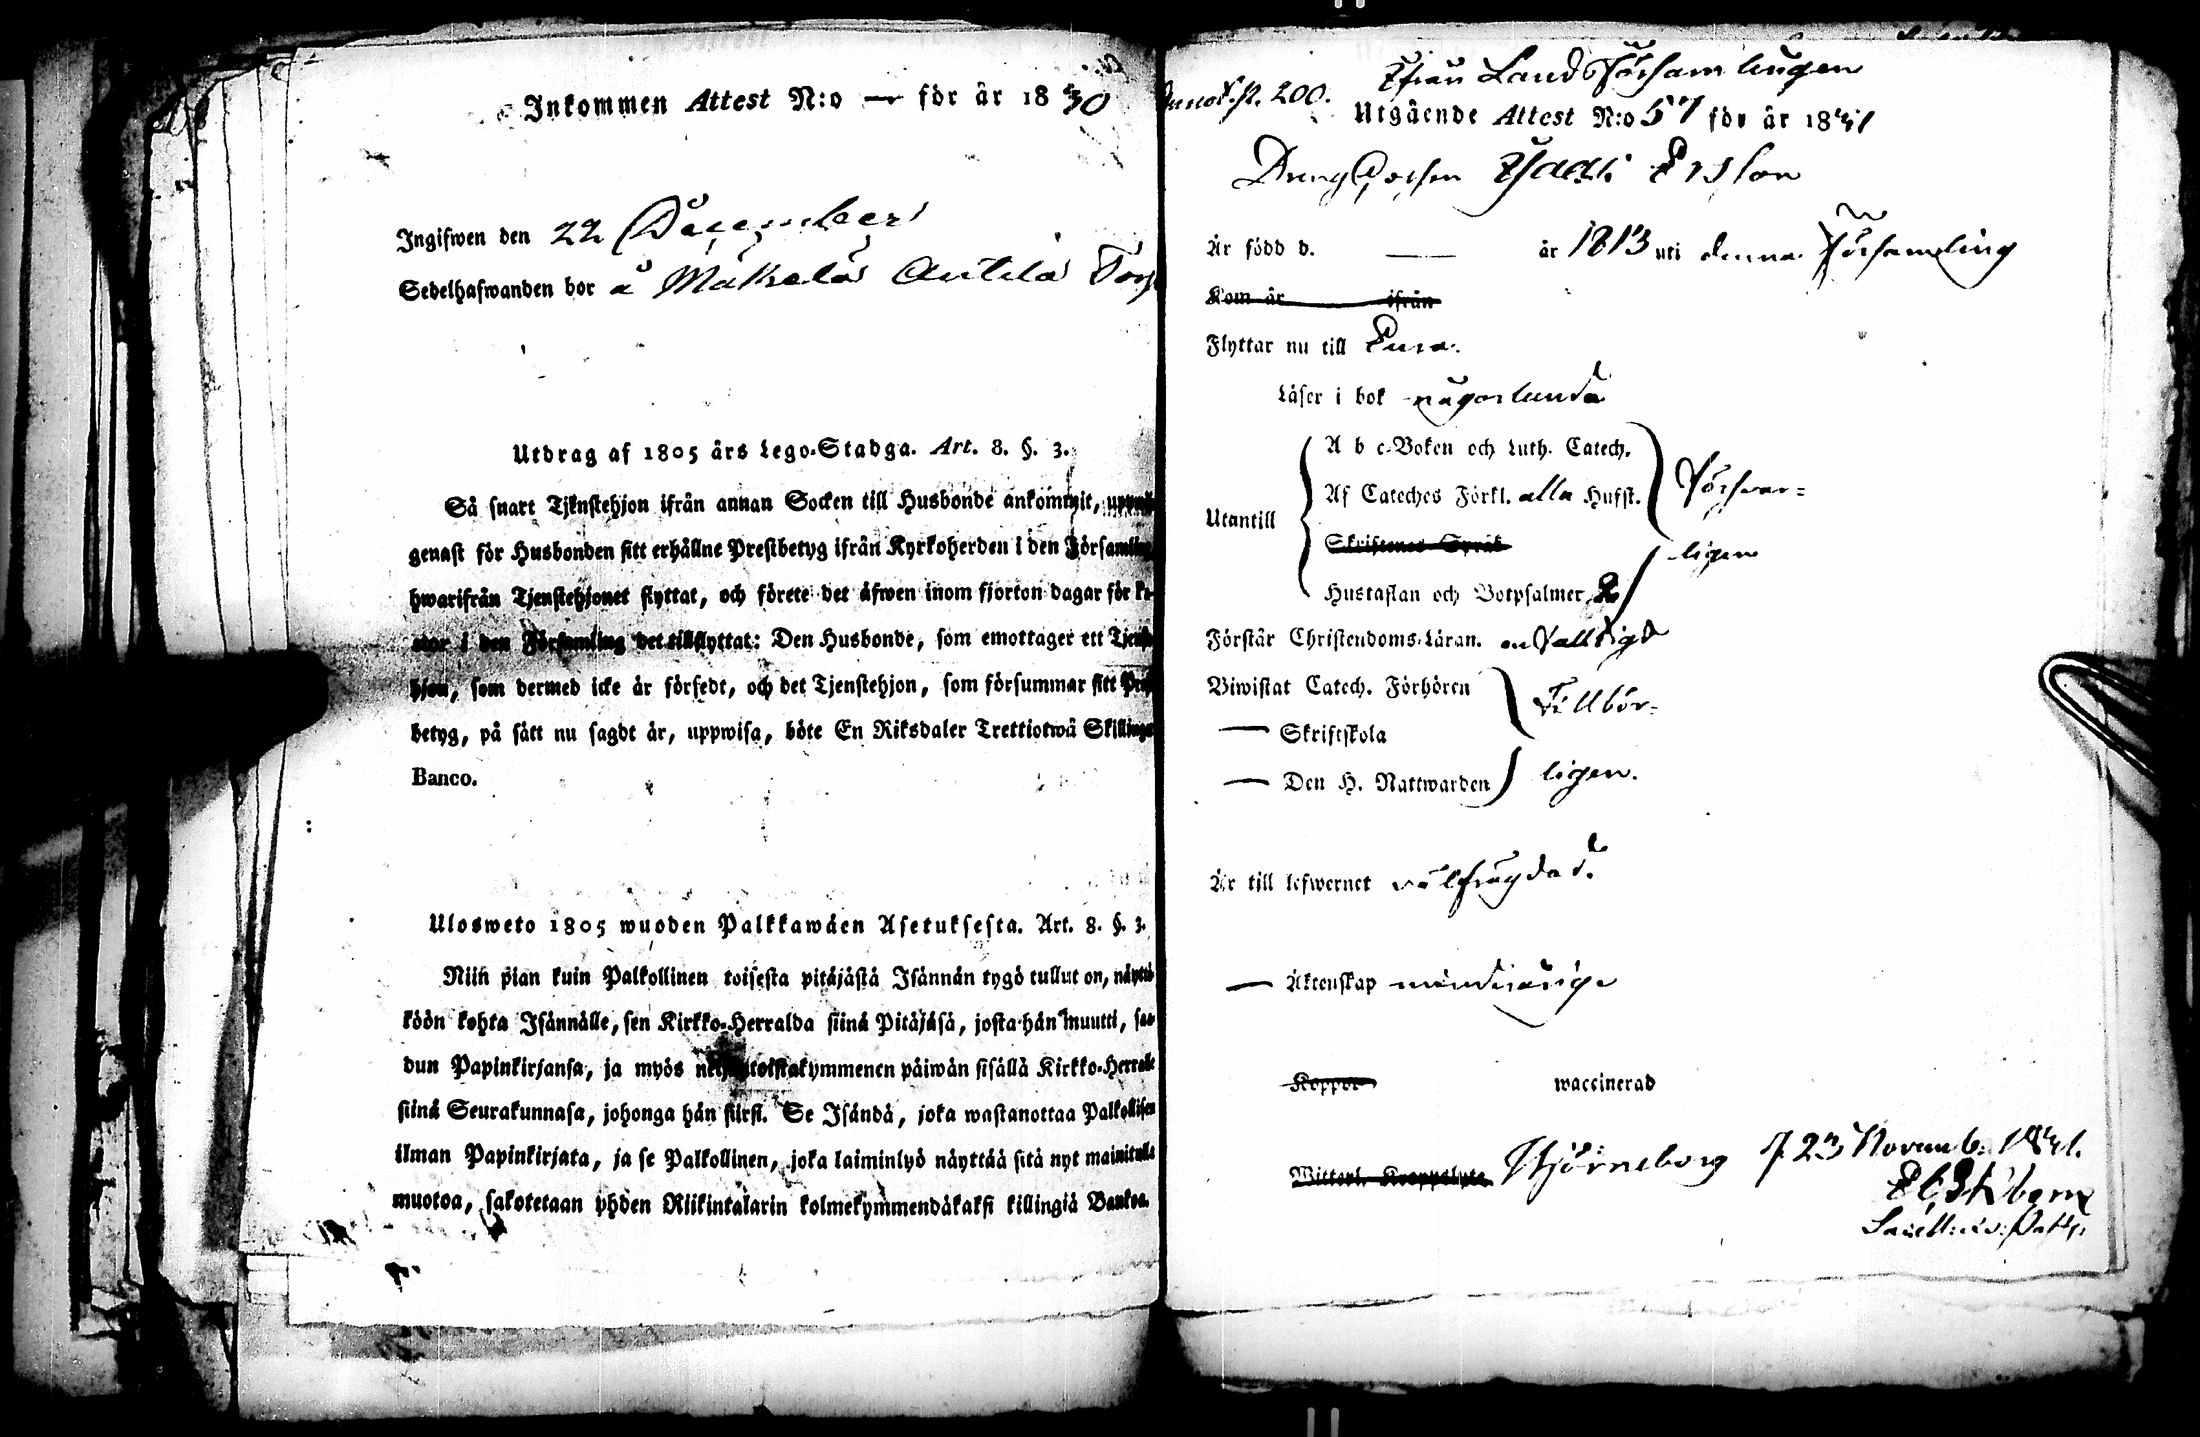 Inkommen Attest N:o — för år 1830
Ingifwen den 22 December
Sedelhafwanden bor å Mäkelä Anttila Torp
Utdrag af 1805 års Lego-Stadga. Art. 8. §. 3.
Så snart Tjenstehjon ifrån annan Socken till Husbonde ankommit,
genast för Husbonden sitt erhållne Prestbetyg ifrån Kyrkoherden i den Församling
hwarifrån Tjenstehjonet flyttat, och förete det äfwen inom fjorton dagar för
i den Församling det tillflyttat: Den Husbonde, som emottager ett Tjenste-
hjon, som dermed icke är försedt, och det Tjenstehjon, som försummar sitt Prest-
betyg, på sätt nu sagdt är, uppwisa, böte En Riksdaler Trettiotwå Skillingar
Banco.
Ulosweto 1805 wuoden Palkkawäen Asetuksesta. Art. 8. §. 3.
Niin pian kuin Palkollinen toisesta pitäjästä Isännän tygö tullut on, näyttä-
köön kohta Isännälle, sen Kirkko-Herralda siinä Pitäjäsä, josta hän muutti, saa-
dun Papinkirjansa, ja myös neljäntoistakymmenen päiwän sisällä Kirkko-Herralle
siinä Seurakunnasa, johonga hän siirst. Se Isändä, joka wastanottaa Palkollisen
ilman Papinkirjata, ja se Palkollinen, joka laiminlyö näyttää sitä nyt mainitulla
muotoa, sakotetaan yhden Riikintalarin kolmekymmendäkaksi killingiä Bankoa.
200. Ifrån Landsförsamlingen
Utgående Attest N:o 57 för år 1831
Dreng Gossen Ersson
Är född d. — år 1813 uti denna Församling
Kom år ifrån
Flyttar nu till Eura.
Läser i bok någorlunda
A b c-Boken och Luth. Catech.
Af Cateches Förkl. alla Hufst. Försvar=
Utantill
Skriftenes Språk
ligen
Hustaflan och Botpsalmer 2
Förstår Christendoms-Läran. enfalldigt
Biwistat Catech. Förhören Tillbör=
— Skriftskola
— Den H. Nattwarden ligen.
Är till lefwernet välfrägdad.
— Äktenskap minderårige
Koppor waccinerad
Björneborg d. 23 Novemb. 1831.